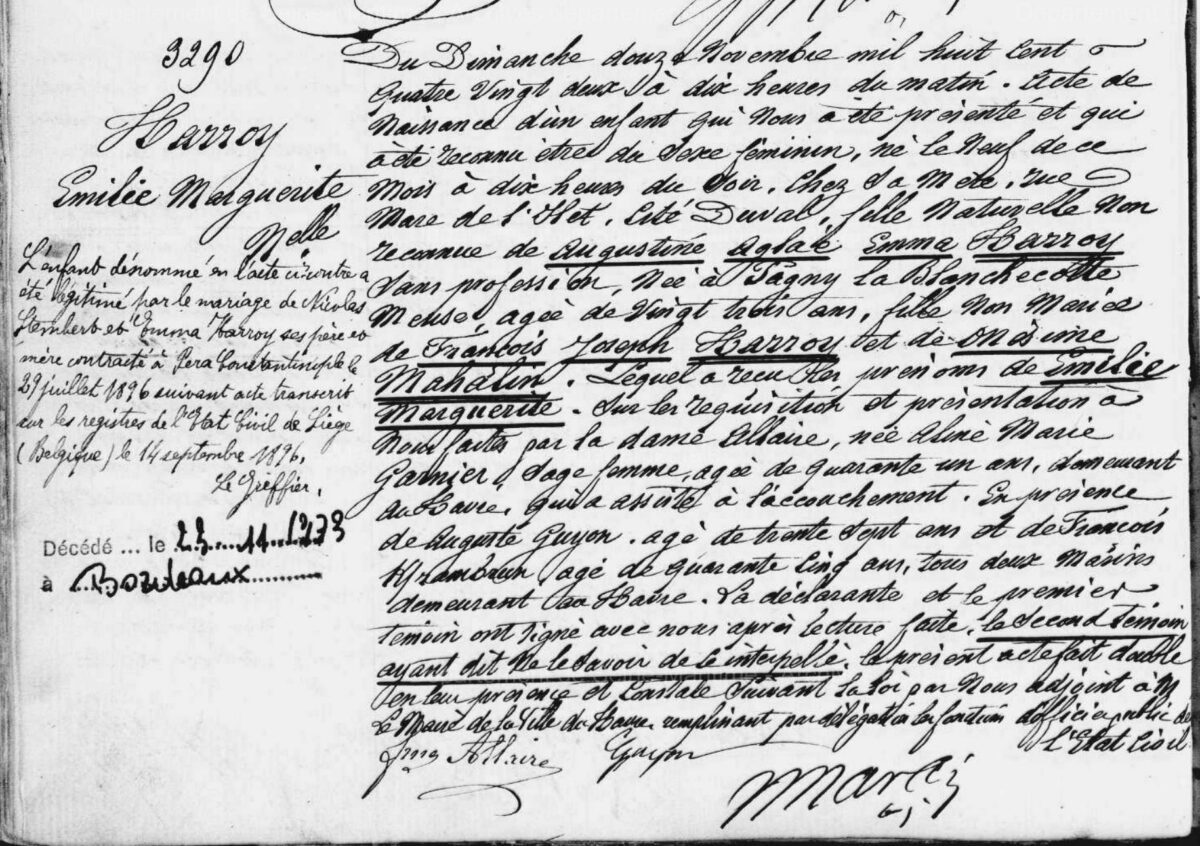 3290
Harroy
Emilie Marguerite
Nelle
L'enfant dénommé en l'acte ci-contre a
été légitimé par le mariage de Nicolas
Stembert et Emma Harroy ses père et
mère contracté à Pera Constantinople le
29 juillet 1896 suivant acte transcrit
sur les registres de l'Etat Civil de Liège
(Belgique) le 14 septembre 1896,
Le Greffier.
Décédé ... le 23...11..1973
à ..Bordeaux
Du Dimanche douze Novembre mil huit Cent
quatre Vingt deux à dix heures du matin. Acte de
Naissance d'un enfant qui Nous a été présenté et qui
a été reconnu être du Sexe féminin, né le Neuf de ce
Mois à dix heures du Soir, Chez Sa Mère, rue
Mare de l'Ilet, Cité Duval, fille Naturelle Non
reconnue de Augustine Aglaé Emma Harroy
Sans profession, Née à Pagny la Blanchecotte
Meuse, agée de Vingt trois ans, fille Non Mariée
de François Joseph Harroy et de
Mahalin. Lequel a reçu les prénoms de Emilie
Marguerite. Sur les réquisition et présentation à
Nous faites par la dame Allaire, née Aliné Marie
Garnier, Sage femme, agée de quarante un ans, demeurant
au Havre, qui a assisté à l'accouchement. En présence
de Auguste Guyon, agé de trente Sept ans et de François
agé de quarante Cinq ans, tous deux Marins
demeurant au Havre. La déclarante et le premier
témoin ont Signé avec nous après lecture faite, le Second témoin
ayant dit Ne le Savoir de ce interpellé. Le présent acte fait double
en leur présence et Constaté Suivant la loi par Nous adjoint à M
Le Maire de la Ville du Havre, remplissant par délégation les fonctions d'officier public de
L'Etat Civil
fme Allaire
Guyon